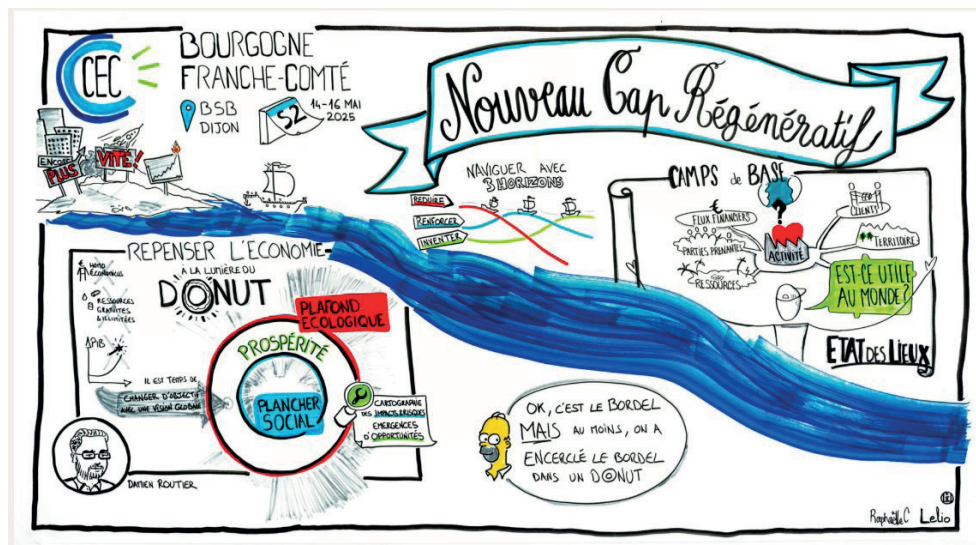 CEC
BOURGOGNE
FRANCHE-COMTÉ
BSB
DIJON
S2
14-16 MAI
2025
Nouveau Cap Régénératif
ENCORE
PLUS
VITE!
NAVIGUER AVEC
3 HORIZONS
REDUIRE
RENFORCER
INVENTER
CAMPS de BASE
€
FLUX FINANCIERS
PARTIES PRENANTES
RESSOURCES
?
ACTIVITÉ
CLIENTS
TERRITOIRE
EST-CE UTILE
AU MONDE?
ETAT DES LIEUX
REPENSER L'ÉCONOMIE
À LA LUMIÈRE DU
DONUT
HOMO
ÉCONOMICUS
RESSOURCES
GRATUITES
& ILLIMITÉES
PIB
IL EST TEMPS DE
CHANGER D'OBJECTIF
AVEC UNE VISION GLOBALE
PLAFOND
ECOLOGIQUE
PROSPÉRITÉ
PLANCHER
SOCIAL
CARTOGRAPHIE
DES IMPACTS, RISQUES
EMERGENCES
D'OPPORTUNITÉS
DAMIEN ROUTIER
OK, C'EST LE BORDEL
MAIS AU MOINS, ON A
ENCERCLÉ LE BORDEL
DANS UN DONUT
Raphaëlle C Lelio